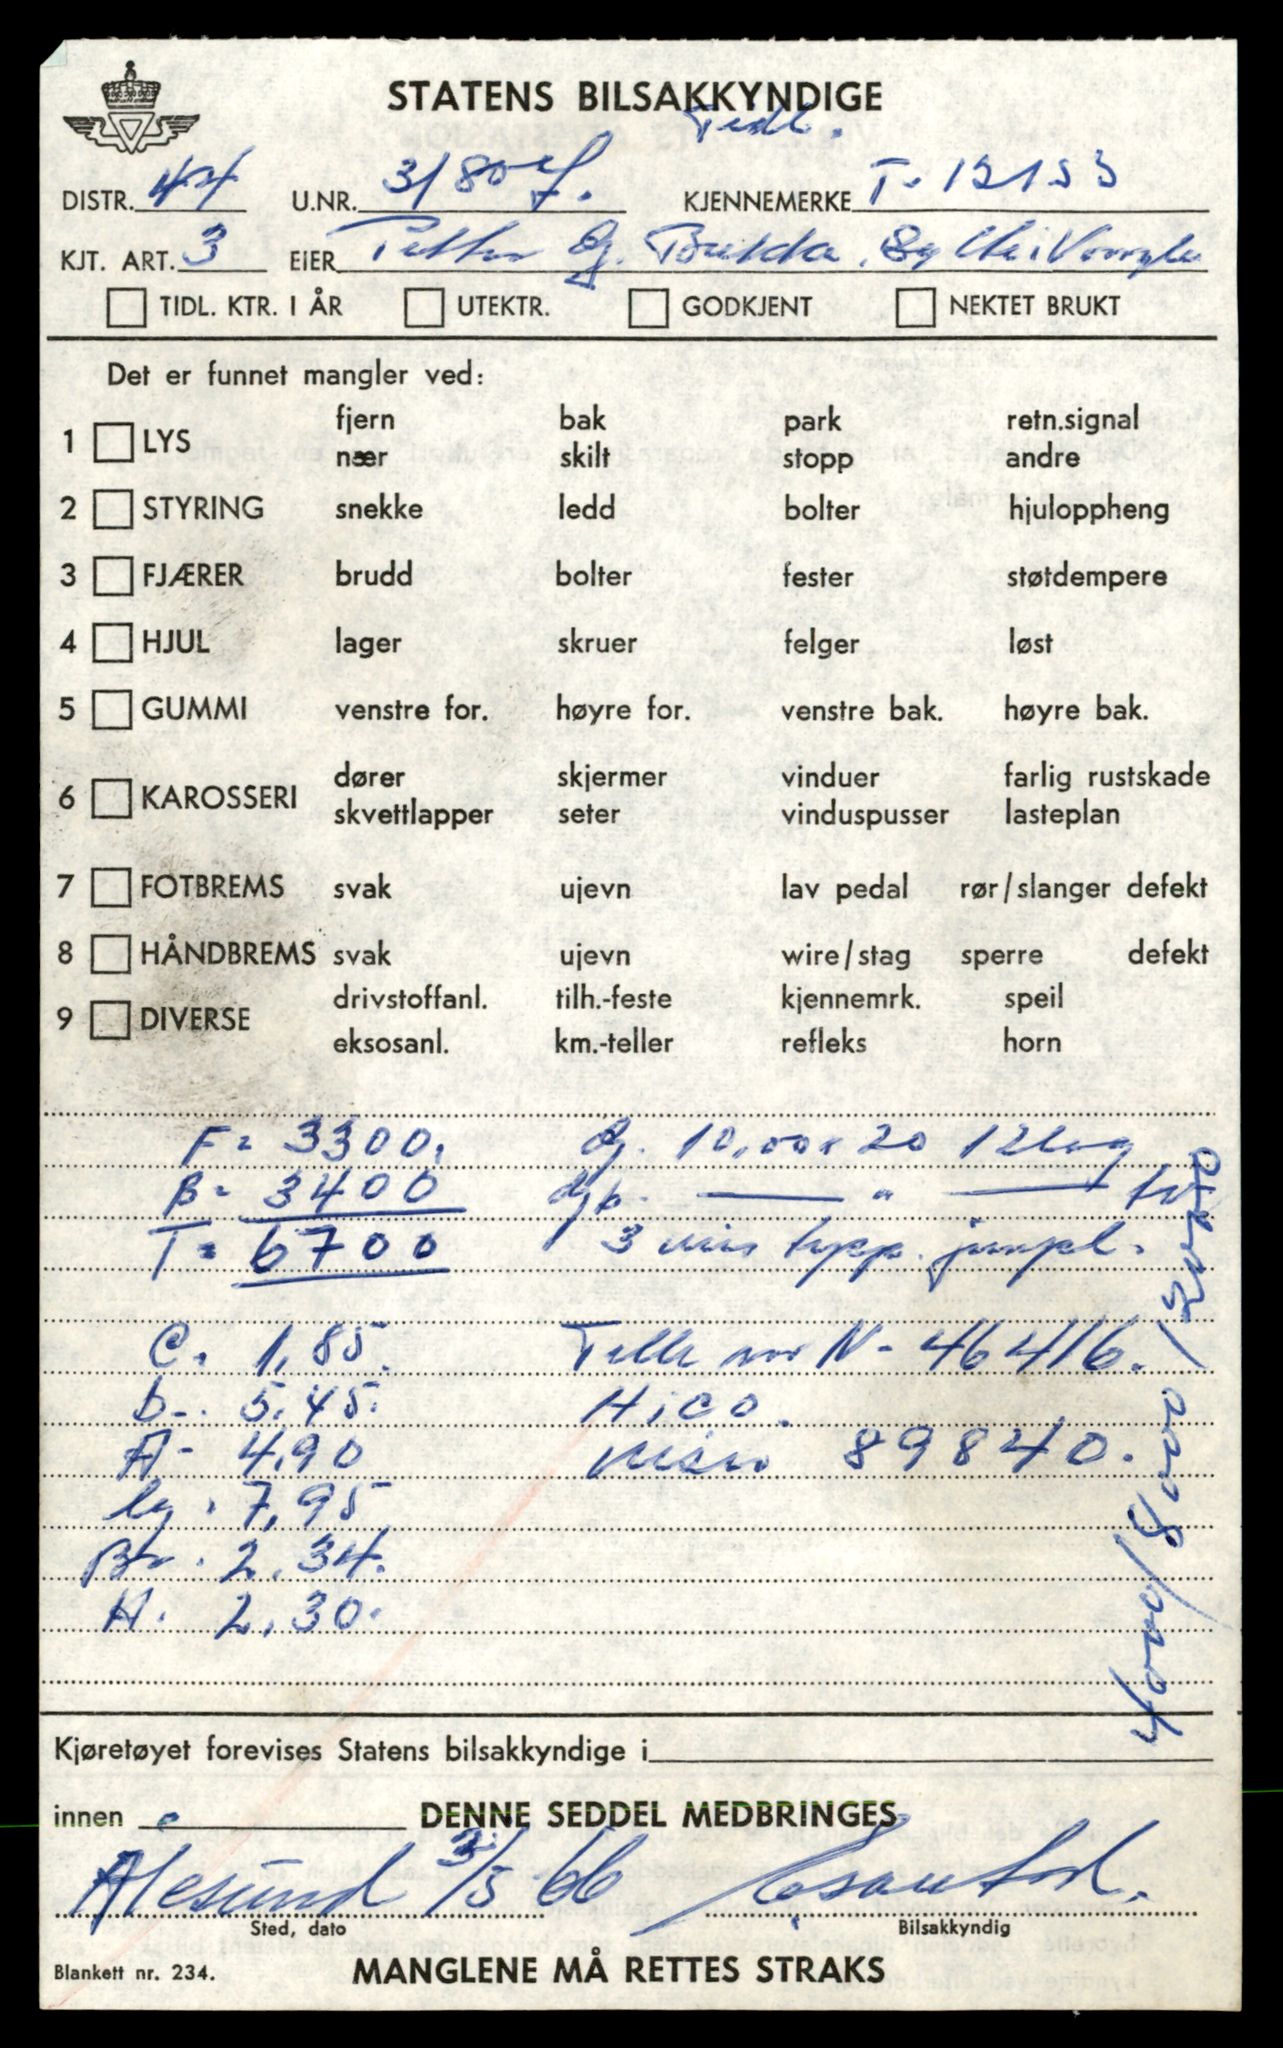 STATENS BILSAKKYNDIGE
Tidl.
DISTR. 44 U.NR. 3/80 KJENNEMERKE T- 12153
KJT. ART. 3 EIER Petter Brekka
TIDL. KTR. I ÅR UTEKTR. GODKJENT NEKTET BRUKT
Det er funnet mangler ved:
fjern bak park retn.signal
1 LYS
nær skilt stopp andre
2 STYRING snekke ledd bolter hjuloppheng
3 FJÆRER brudd bolter fester støtdempere
4 HJUL lager skruer felger løst
5 GUMMI venstre for. høyre for. venstre bak. høyre bak.
dører skjermer vinduer farlig rustskade
6 KAROSSERI
skvettlapper seter vinduspusser lasteplan
7 FOTBREMS svak ujevn lav pedal rør/slanger defekt
8 HÅNDBREMS svak ujevn wire/stag sperre defekt
drivstoffanl. tilh.-feste kjennemrk. speil
9 DIVERSE
eksosanl. km.-teller refleks horn
F= 3300. 10,00x20 12lag
B= 3400 — " —
T= 6700 3
C. 1,85. N- 46416.
b-. 5,45. Hico.
A- 4,90 89840.
lg. 7,95
Br. 2,34.
H. 2,30.
Kjøretøyet forevises Statens bilsakkyndige i
innen DENNE SEDDEL MEDBRINGES
Ålesund 3/3-66
Sted, dato Bilsakkyndig
Blankett nr. 234. MANGLENE MÅ RETTES STRAKS